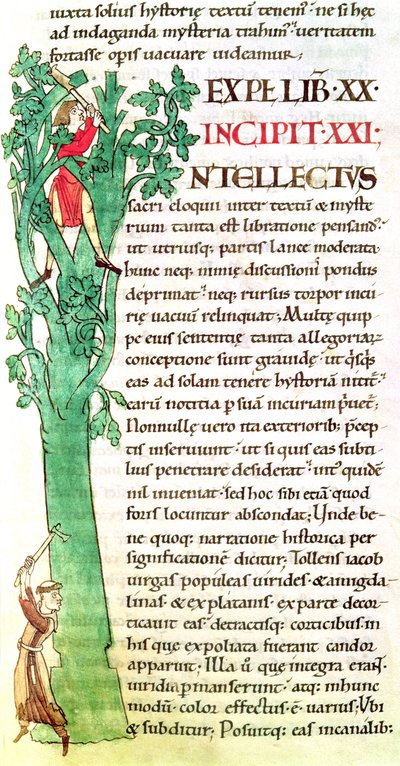 iuxta solius hystorię textū tenem᷒. ne si hęc
ad indaganda mysteria trahim᷒. ueritatem
fortasse opis uacuare uideamur;
EXPŁ LIB̄·XX·
INCIPIT·XXI;
NTELLECTVS
sacri eloquii inter textū & myste
rium tanta est libratione pensand᷒.
ut utriusq; partis lance moderata
hunc neq; nimię discussioni pondus
deprimat. neq; rursus torpor incu
rię uacuū relinquat; Multę quip
pe eius sententię tanta allegoriaꝝ
conceptione sunt grauidę. ut q̄sq̄s
eas ad solam tenere hystoriā nitit᷑.
earū notitia ꝑ suā incuriam p̄uet᷑;
Nonnullę uero ita exteriorib; p̄cep
tis inseruiunt. ut si quis eas subti
lius penetrare desiderat. int᷒ quidē
nil inueniat. sed hoc sibi etiā quod
foris locuntur abscondat; Vnde be
ne quoq; narratione historica per
significationē dicitur; Tollens iacob
uirgas populeas uirides. & amigda
linas. & ex platanis. ex parte decor
ticauit eas. detractisq; corticibus in
his quę expoliata fuerant candor
apparuit; Illa ū quę integra eraN̄.
uiridia ꝑmanserunt. atq; in hunc
modū color effectus ē uarius; Vbi
& subditur; Posuitq; eas incanalib: